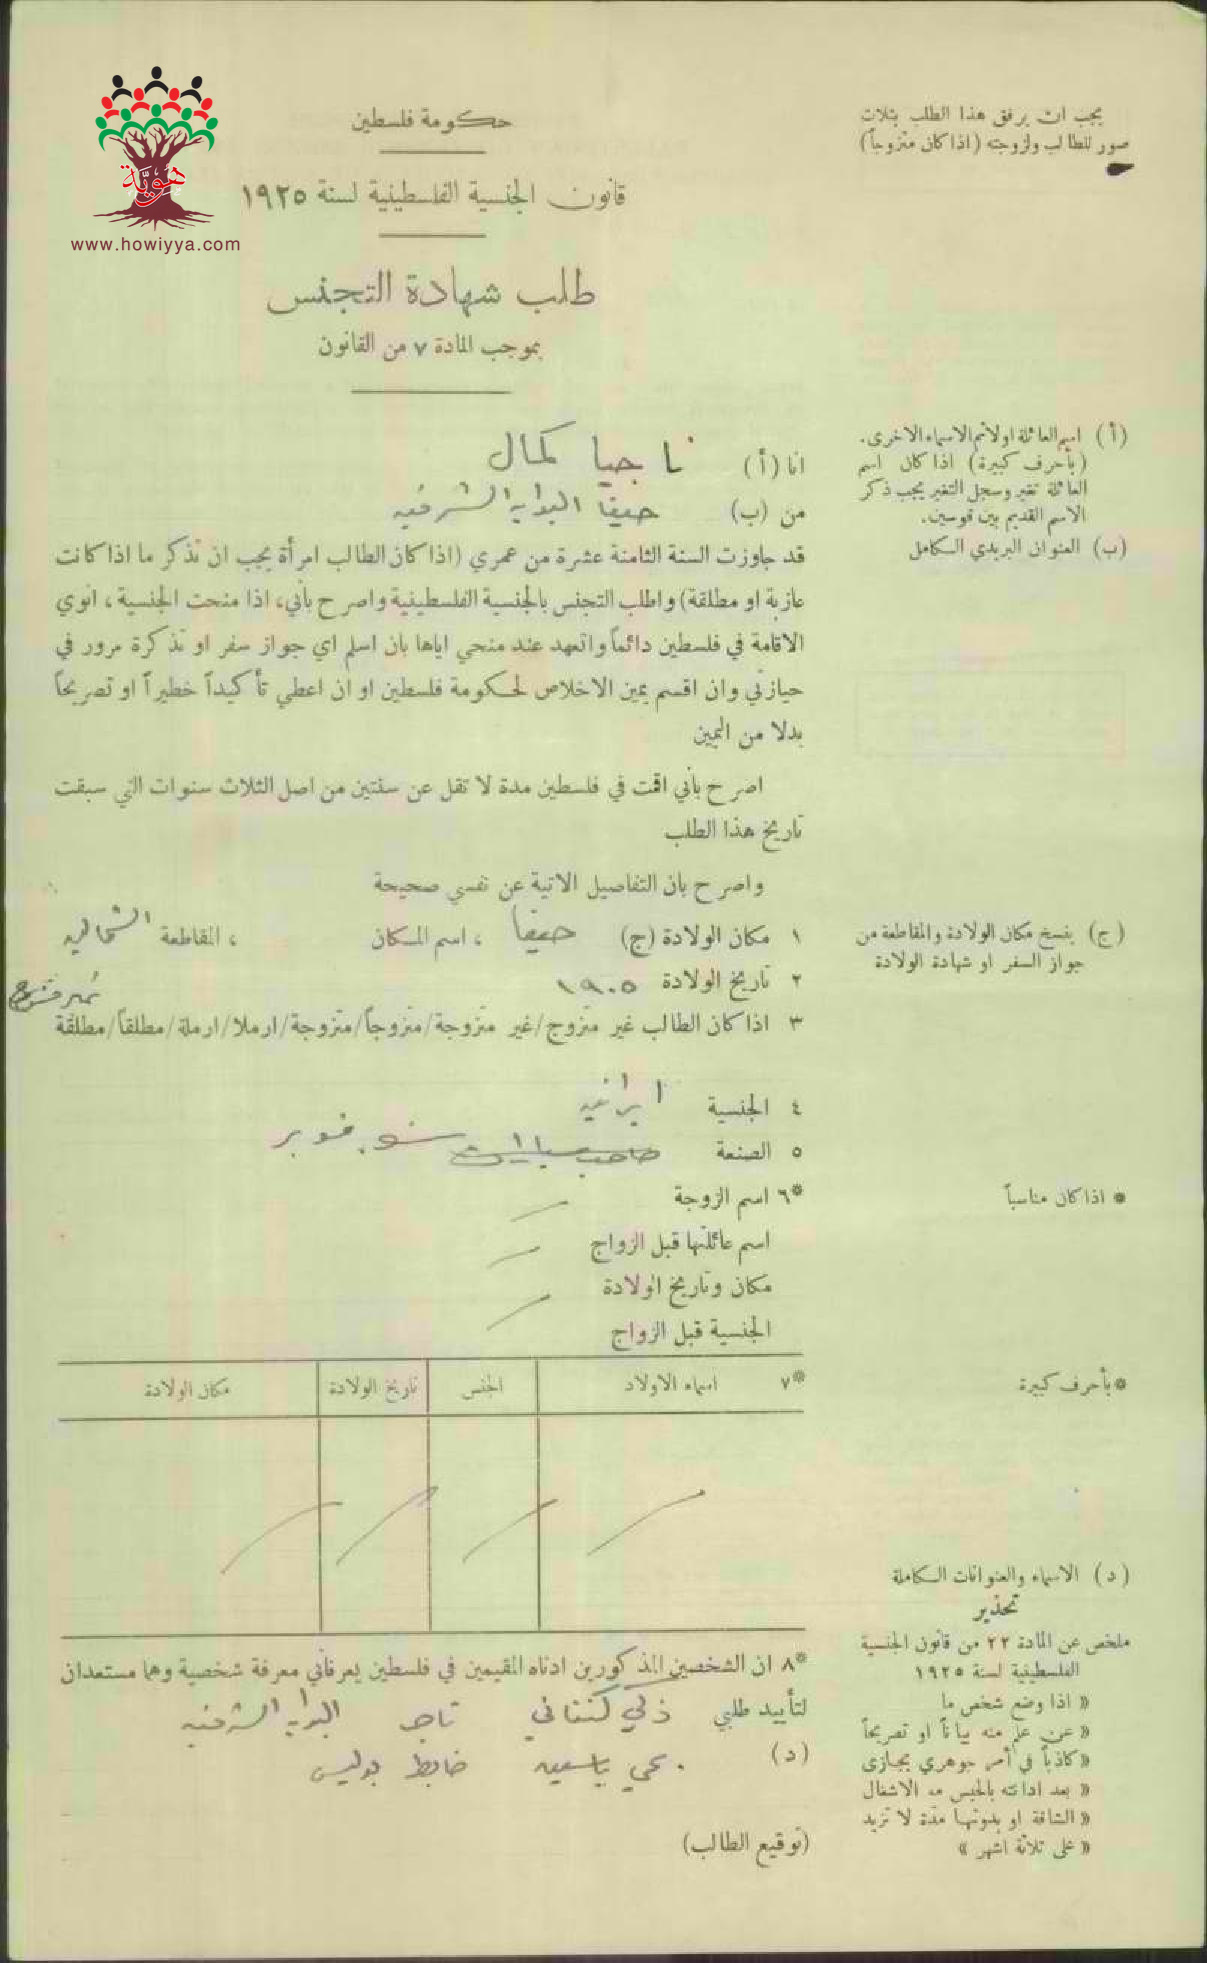 هوية
www.howiyya.com
يجب ان يرفق هذا الطلب بثلاث
صور للطالب ولزوجته (اذا كان متزوجاً)
حكومة فلسطين
قانون الجنسية الفلسطينية لسنة ١٩٢٥
طلب شهادة التجنس
بموجب المادة ٧ من القانون
(أ) اسم العائلة اولا ثم الاسماء الاخرى.
(بأحرف كبيرة) اذا كان اسم
العائلة تغير وسجل التغير يجب ذكر
الاسم القديم بين قوسين.
(ب) العنوان البريدي الكامل
انا (أ) ناجيا كمال
من (ب) حيفا البوابه الشرقيه
قد جاوزت السنة الثامنة عشرة من عمري (اذا كان الطالب امرأة يجب ان تذكر ما اذا كانت
عازبة او مطلقة) واطلب التجنس بالجنسية الفلسطينية واصرح بأني، اذا منحت الجنسية، انوي
الاقامة في فلسطين دائماً واتعهد عند منحي اياها بان اسلم اي جواز سفر او تذكرة مرور في
حيازتي وان اقسم يمين الاخلاص لحكومة فلسطين او ان اعطي تأكيداً خطيراً او تصريحاً
بدلا من اليمين
اصرح بأني اقمت في فلسطين مدة لا تقل عن سنتين من اصل الثلاث سنوات التي سبقت
تاريخ هذا الطلب
واصرح بان التفاصيل الاتية عن نفسي صحيحة
(ج) ينسخ مكان الولادة والمقاطعة من
جواز السفر او شهادة الولادة
١ مكان الولادة (ج) حيفا ، اسم المكان ، المقاطعة الشماليه
٢ تاريخ الولادة ١٩٠٥
٣ اذا كان الطالب غير متزوج/غير متزوجة/متزوجاً/متزوجة/ارملا/ارملة/مطلقاً/مطلقة
غير متزوج
٤ الجنسية ايرانيه
٥ الصنعة شوفير
* اذا كان مناسباً
*٦ اسم الزوجة
اسم عائلتها قبل الزواج
مكان وتاريخ الولادة
الجنسية قبل الزواج
* بأحرف كبيرة
*٧ اسماء الاولاد الجنس تاريخ الولادة مكان الولادة
(د) الاسماء والعنوانات الكاملة
تحذير
ملخص عن المادة ٢٢ من قانون الجنسية
الفلسطينية لسنة ١٩٢٥
« اذا وضع شخص ما
« عن علم منه بياناً او تصريحاً
« كاذباً في أمر جوهري يجازى
« بعد ادانته بالحبس مع الاشغال
« الشاقة او بدونها مدة لا تزيد
« على ثلاثة اشهر »
*٨ ان الشخصين المذكورين ادناه المقيمين في فلسطين يعرفاني معرفة شخصية وهما مستعدان
لتأييد طلبي ذكي كنفاني تاجر البوابه الشرقيه
(د) يحي ياسين ضابط بوليس
(توقيع الطالب)